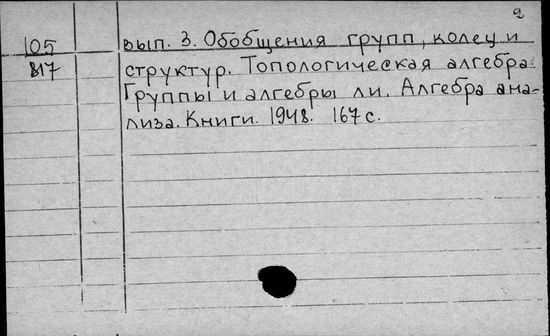 2
105
вып. 3. Обобщения групп, колец и
В17
структур. Топологическая алгебра.
Группы и алгебры ли. Алгебра ана-
лиза. Книги. 1948. 167 с.